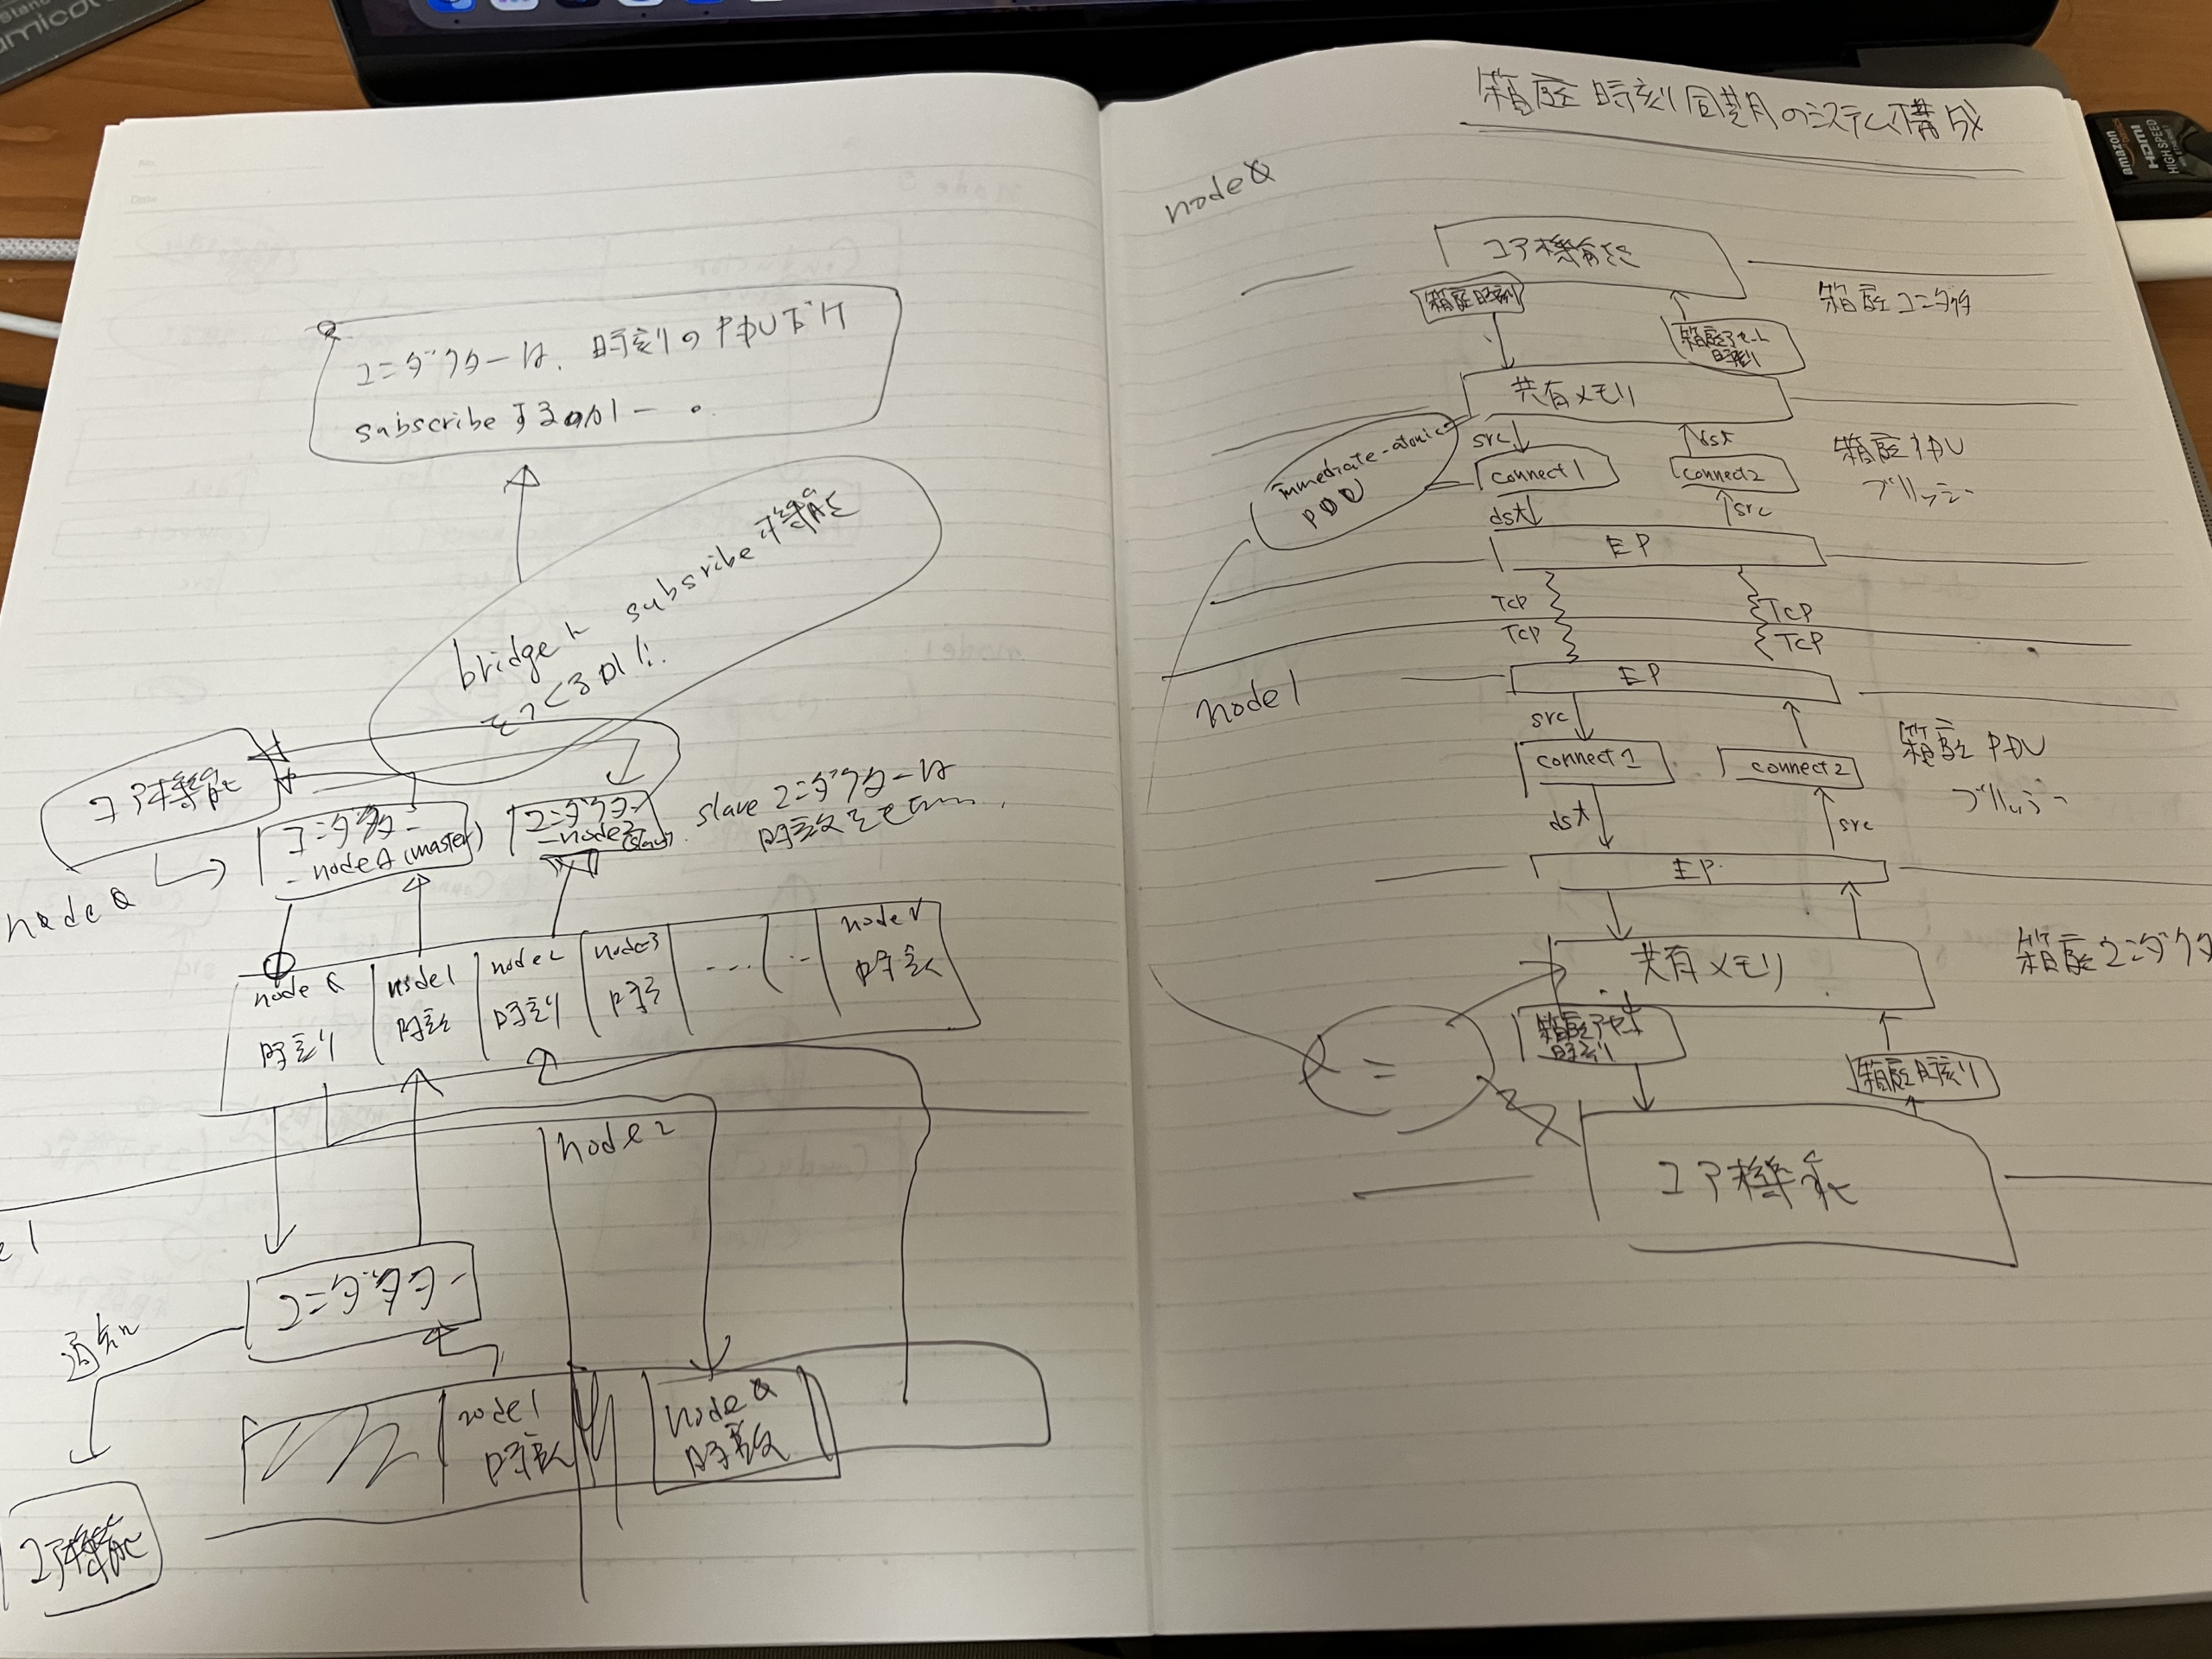 コンダクターは、時刻のPDUだけ
subscribeするのが一。
bridgeに subscribe 機能
をつくるのが!!
コア機能
コンダクター
node0 (master)
コンダクター
slave コンダクターは
node0
node0
時刻
node1
時刻
node2
時刻
node3
....
..
node N
時刻
node2
コンダクター
通知
node1
時刻
node0
時刻
コア機能
箱庭時刻同期のシステム構成
node0
コア機能
箱庭時刻
箱庭アセット
時刻
箱庭コンダクタ
共有メモリ
immediate-atomic
PDU
src
connect1
dst
dst
connect2
src
箱庭PDU
ブリッジ
EP
TCP
TCP
TCP
TCP
node1
EP
src
connect1
dst
connect2
src
箱庭PDU
ブリッジ
EP
共有メモリ
箱庭コンダクタ
箱庭アセット
時刻
箱庭時刻
=
コア機能
amazon
HDMI
HIGH SPEED